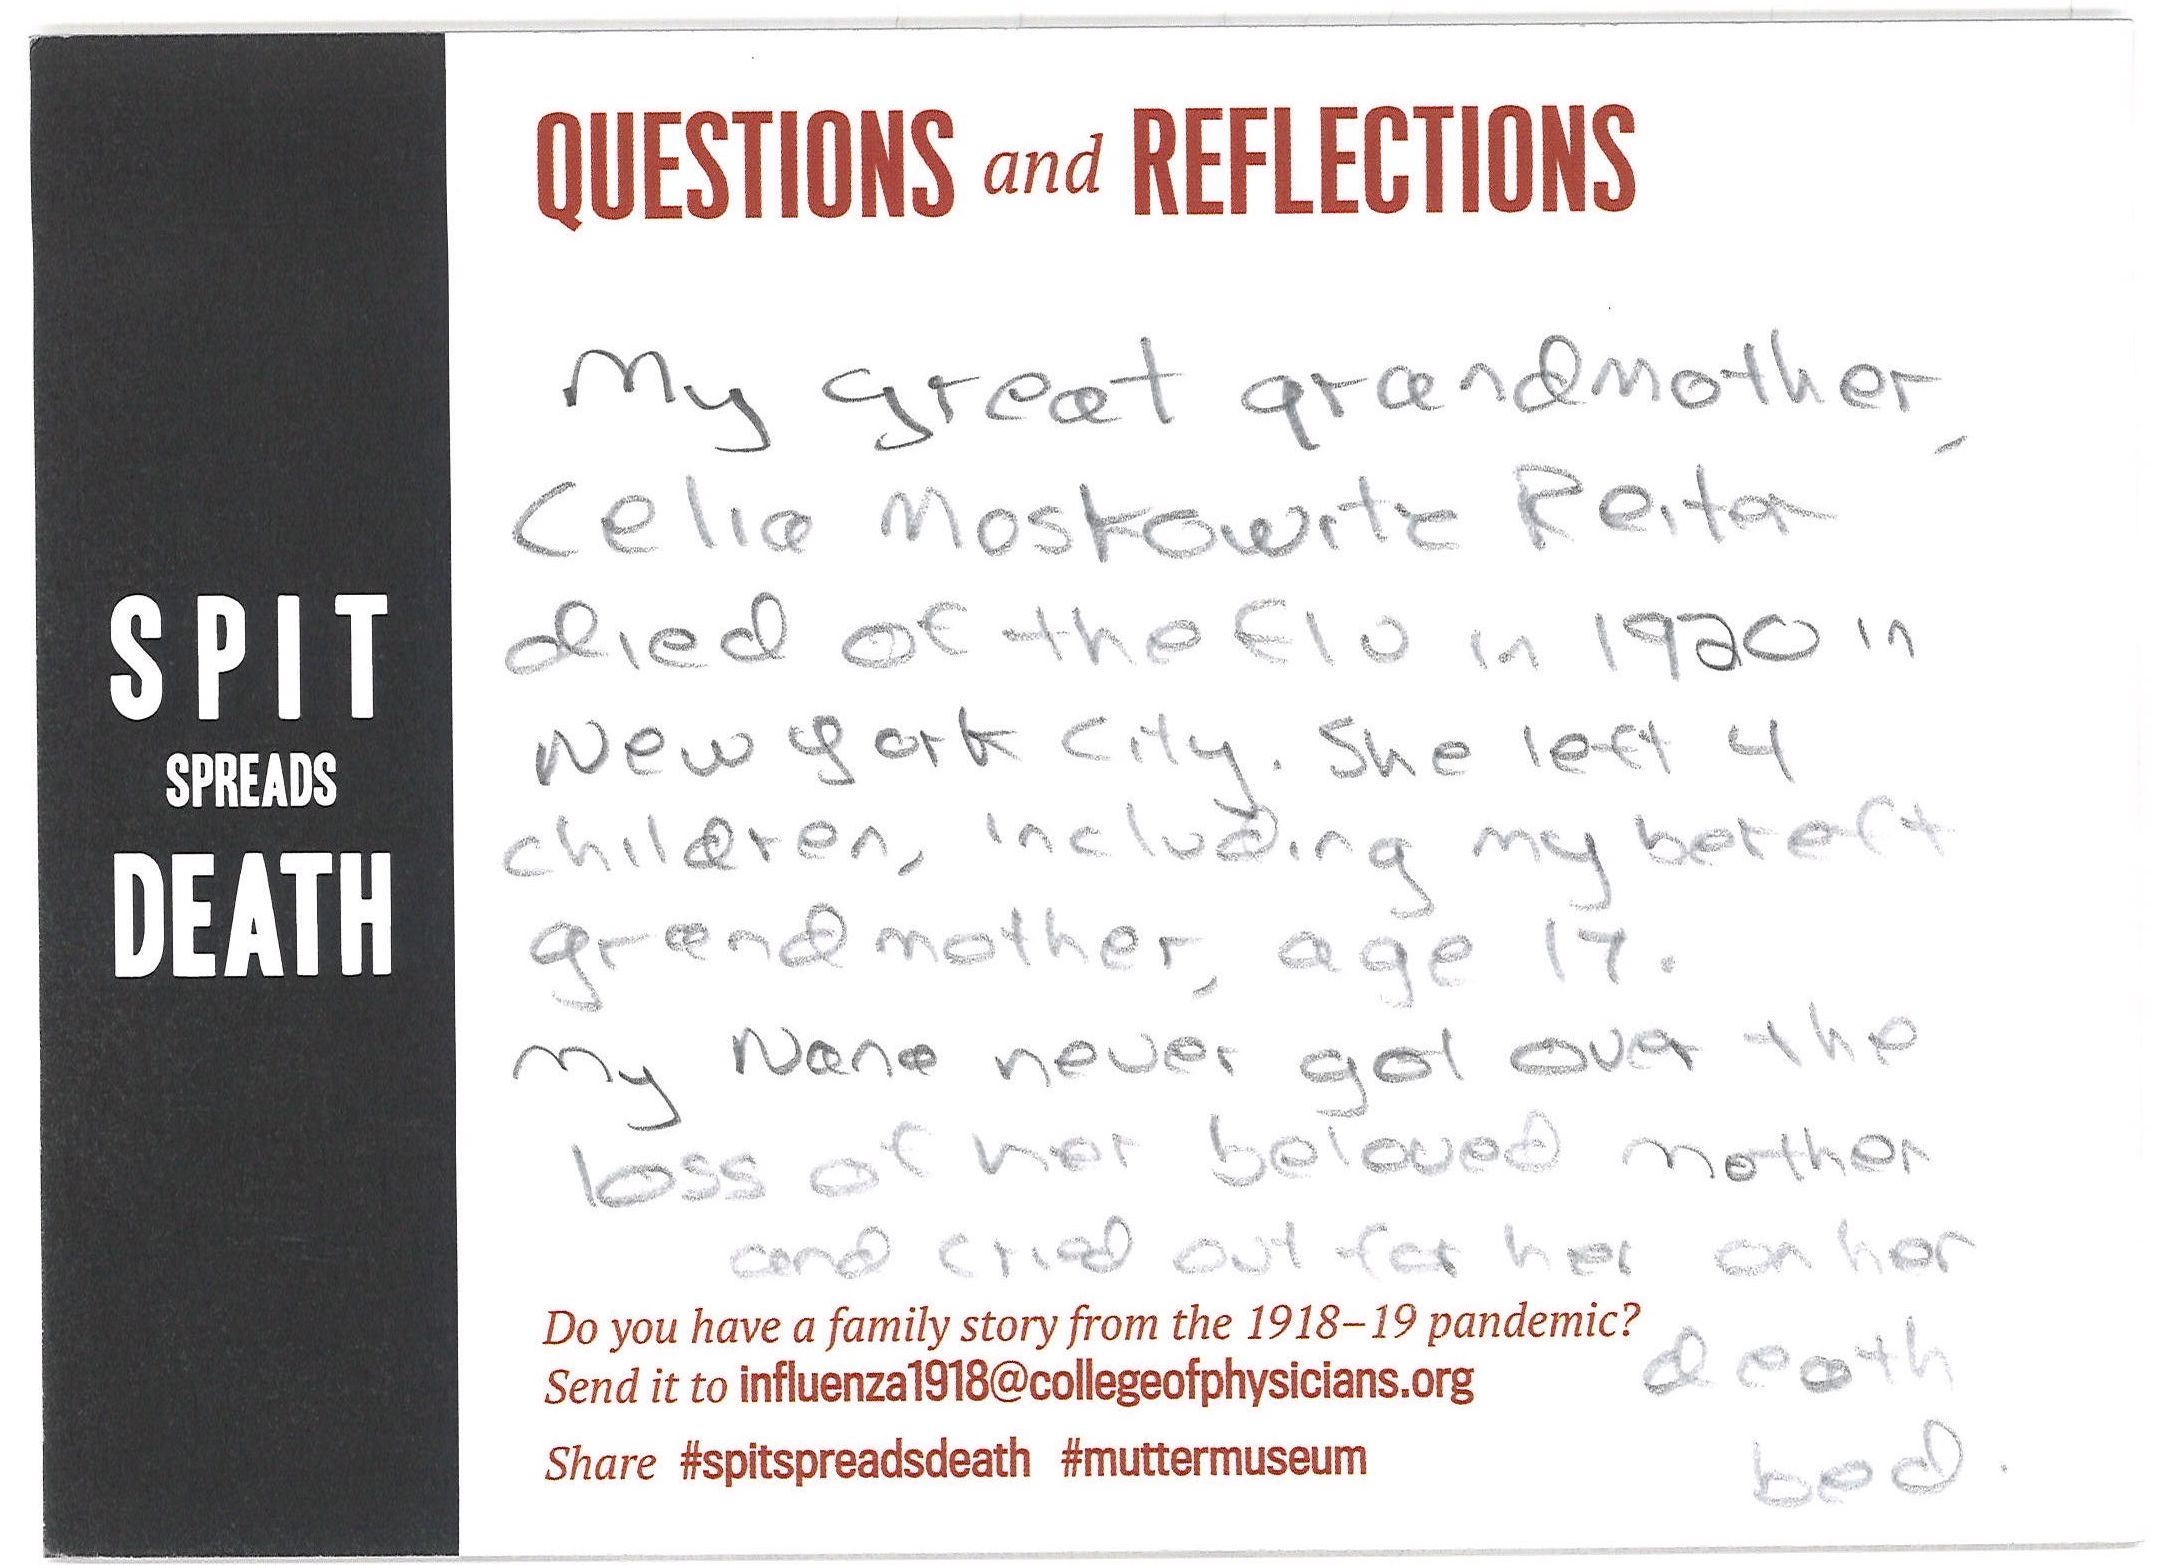 SPIT
SPREADS
DEATH
QUESTIONS and REFLECTIONS
My great grandmother,
Celia Moskowitz Reiter
died of the flu in 1920 in
New York City. She left 4
children, including my bereft
grandmother, age 17.
My Nana never got over the
loss of her beloved mother
and cried out for her on her
death
bed.
Do you have a family story from the 1918–19 pandemic?
Send it to influenza1918@collegeofphysicians.org
Share #spitspreadsdeath #muttermuseum